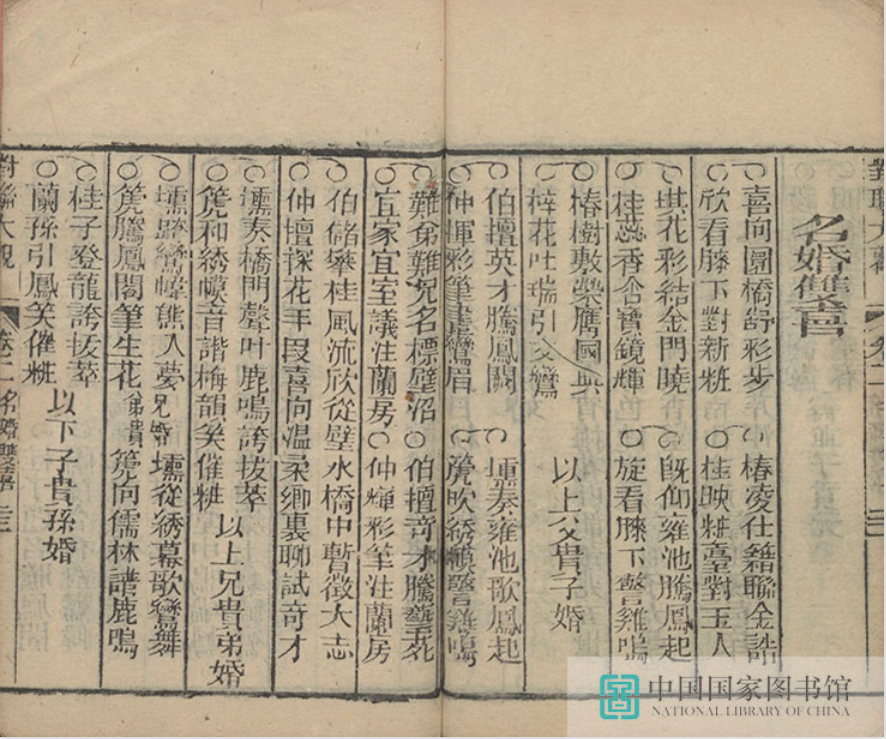 對聯大觀 卷二
名婚雙喜
喜向圜橋舒彩步 椿凌仕籍聯金誥
欣看膝下對新粧 桂映粧臺對玉人
琪花彩結金門曉 既仰雍池騰鳳起
桂蕊香含寶鏡輝 旋看膝下警雞鳴
椿樹敷榮膺國典
梓花吐瑞引文鸞 以上父貴子婚
伯擅英才騰鳳闕 壎奏雍池歌鳳起
仲揮彩筆畫鸞眉 篪吹綉幙警雞鳴
難弟難兄名標壁沼 伯擅奇才騰
宜家宜室議注蘭房 仲輝彩筆注蘭房
伯儲攀桂風流欣從壁水橋中暫徵大志
仲擅探花手段喜向温柔鄉裏聊試奇才
壎奏橋門聲叶鹿鳴誇拔萃
篪和綉幙音諧梅韻笑催粧 以上兄貴弟婚
壎 鸞幃熊入夢 兄婚 壎從綉幕歌鸞舞
篪騰鳳閣筆生花 弟貴 篪向儒林譜鹿鳴
桂子登龍誇拔萃
蘭孫引鳳笑催粧 以下子貴孫婚
對聯大觀 卷二 名婚雙喜
中国国家图书馆
NATIONAL LIBRARY OF CHINA